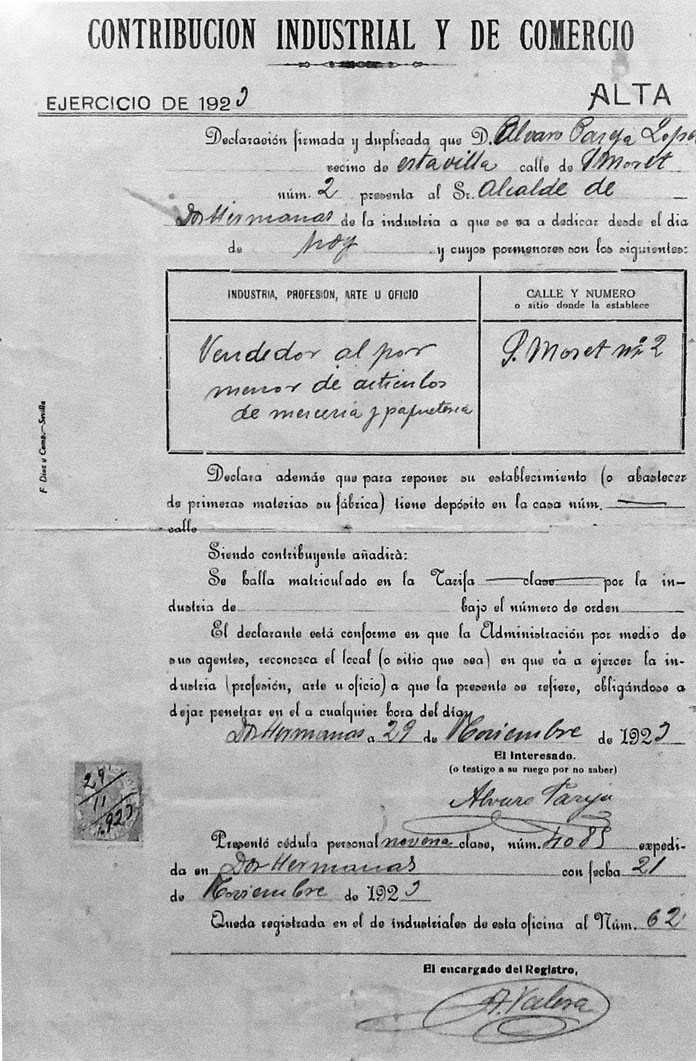 CONTRIBUCION INDUSTRIAL Y DE COMERCIO
EJERCICIO DE 1923
ALTA
Declaración firmada y duplicada que D. Alvaro Pareja Lopez
vecino de esta villa calle de S Moret
núm. 2 presenta al Sr. Alcalde de
Dos Hermanas de la industria a que se va a dedicar desde el dia
de hoy y cuyos pormenores son los siguientes:
INDUSTRIA, PROFESIÓN, ARTE U OFICIO
CALLE Y NUMERO
o sitio donde la establece
Vendedor al por
menor de articulos
de merceria y paqueteria
S. Moret nº 2
F. Díaz y Comp.—Sevilla
Declara además que para reponer su establecimiento (o abastecer
de primeras materias su fábrica) tiene depósito en la casa núm.
calle
Siendo contribuyente añadirà:
Se halla matriculado en la Tarifa clase por la in-
dustria de bajo el número de orden
El declarante está conforme en que la Administración por medio de
sus agentes, reconozca el local (o sitio que sea) en que vá a ejercer la in-
dustria (profesión, arte u oficio) a que la presente se refiere, obligándose a
dejar penetrar en el a cualquier hora del día,
Dos Hermanas a 29 de Noviembre de 1923
El Interesado.
(o testigo a su ruego por no saber)
Alvaro Pareja
29
11
1923
Presentó cédula personal novena clase, núm. 4085 expedi-
da en Dos Hermanas con fecha 21
de Noviembre de 1923
Queda registrada en el de industriales de esta oficina al Núm. 62
El encargado del Registro,
A. Valera